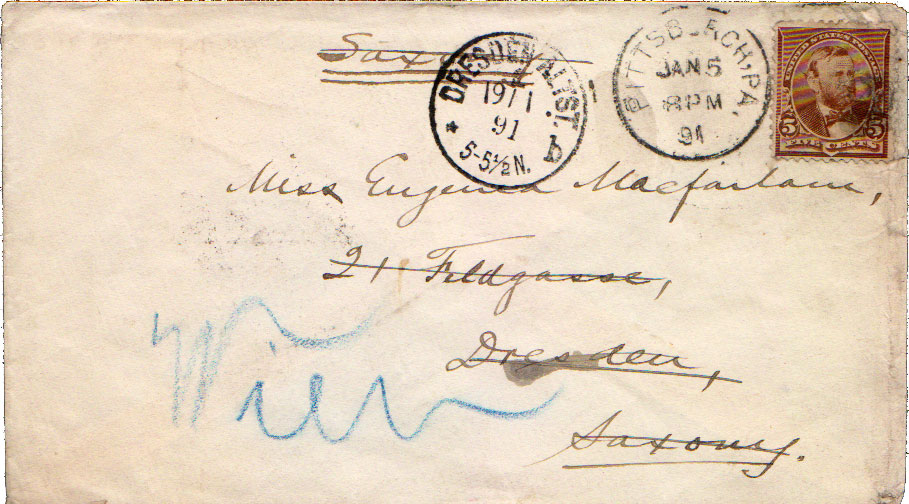 Saxony
DRESDEN ALTST.
19/1
91
5-5½N.
b
PITTSBURGH, PA.
JAN 5
8 PM
91
UNITED STATES POSTAGE
5 FIVE CENTS 5
Miss Eugenia Macfarlane,
21 Feldgasse,
Dresden,
Saxony.
Wien